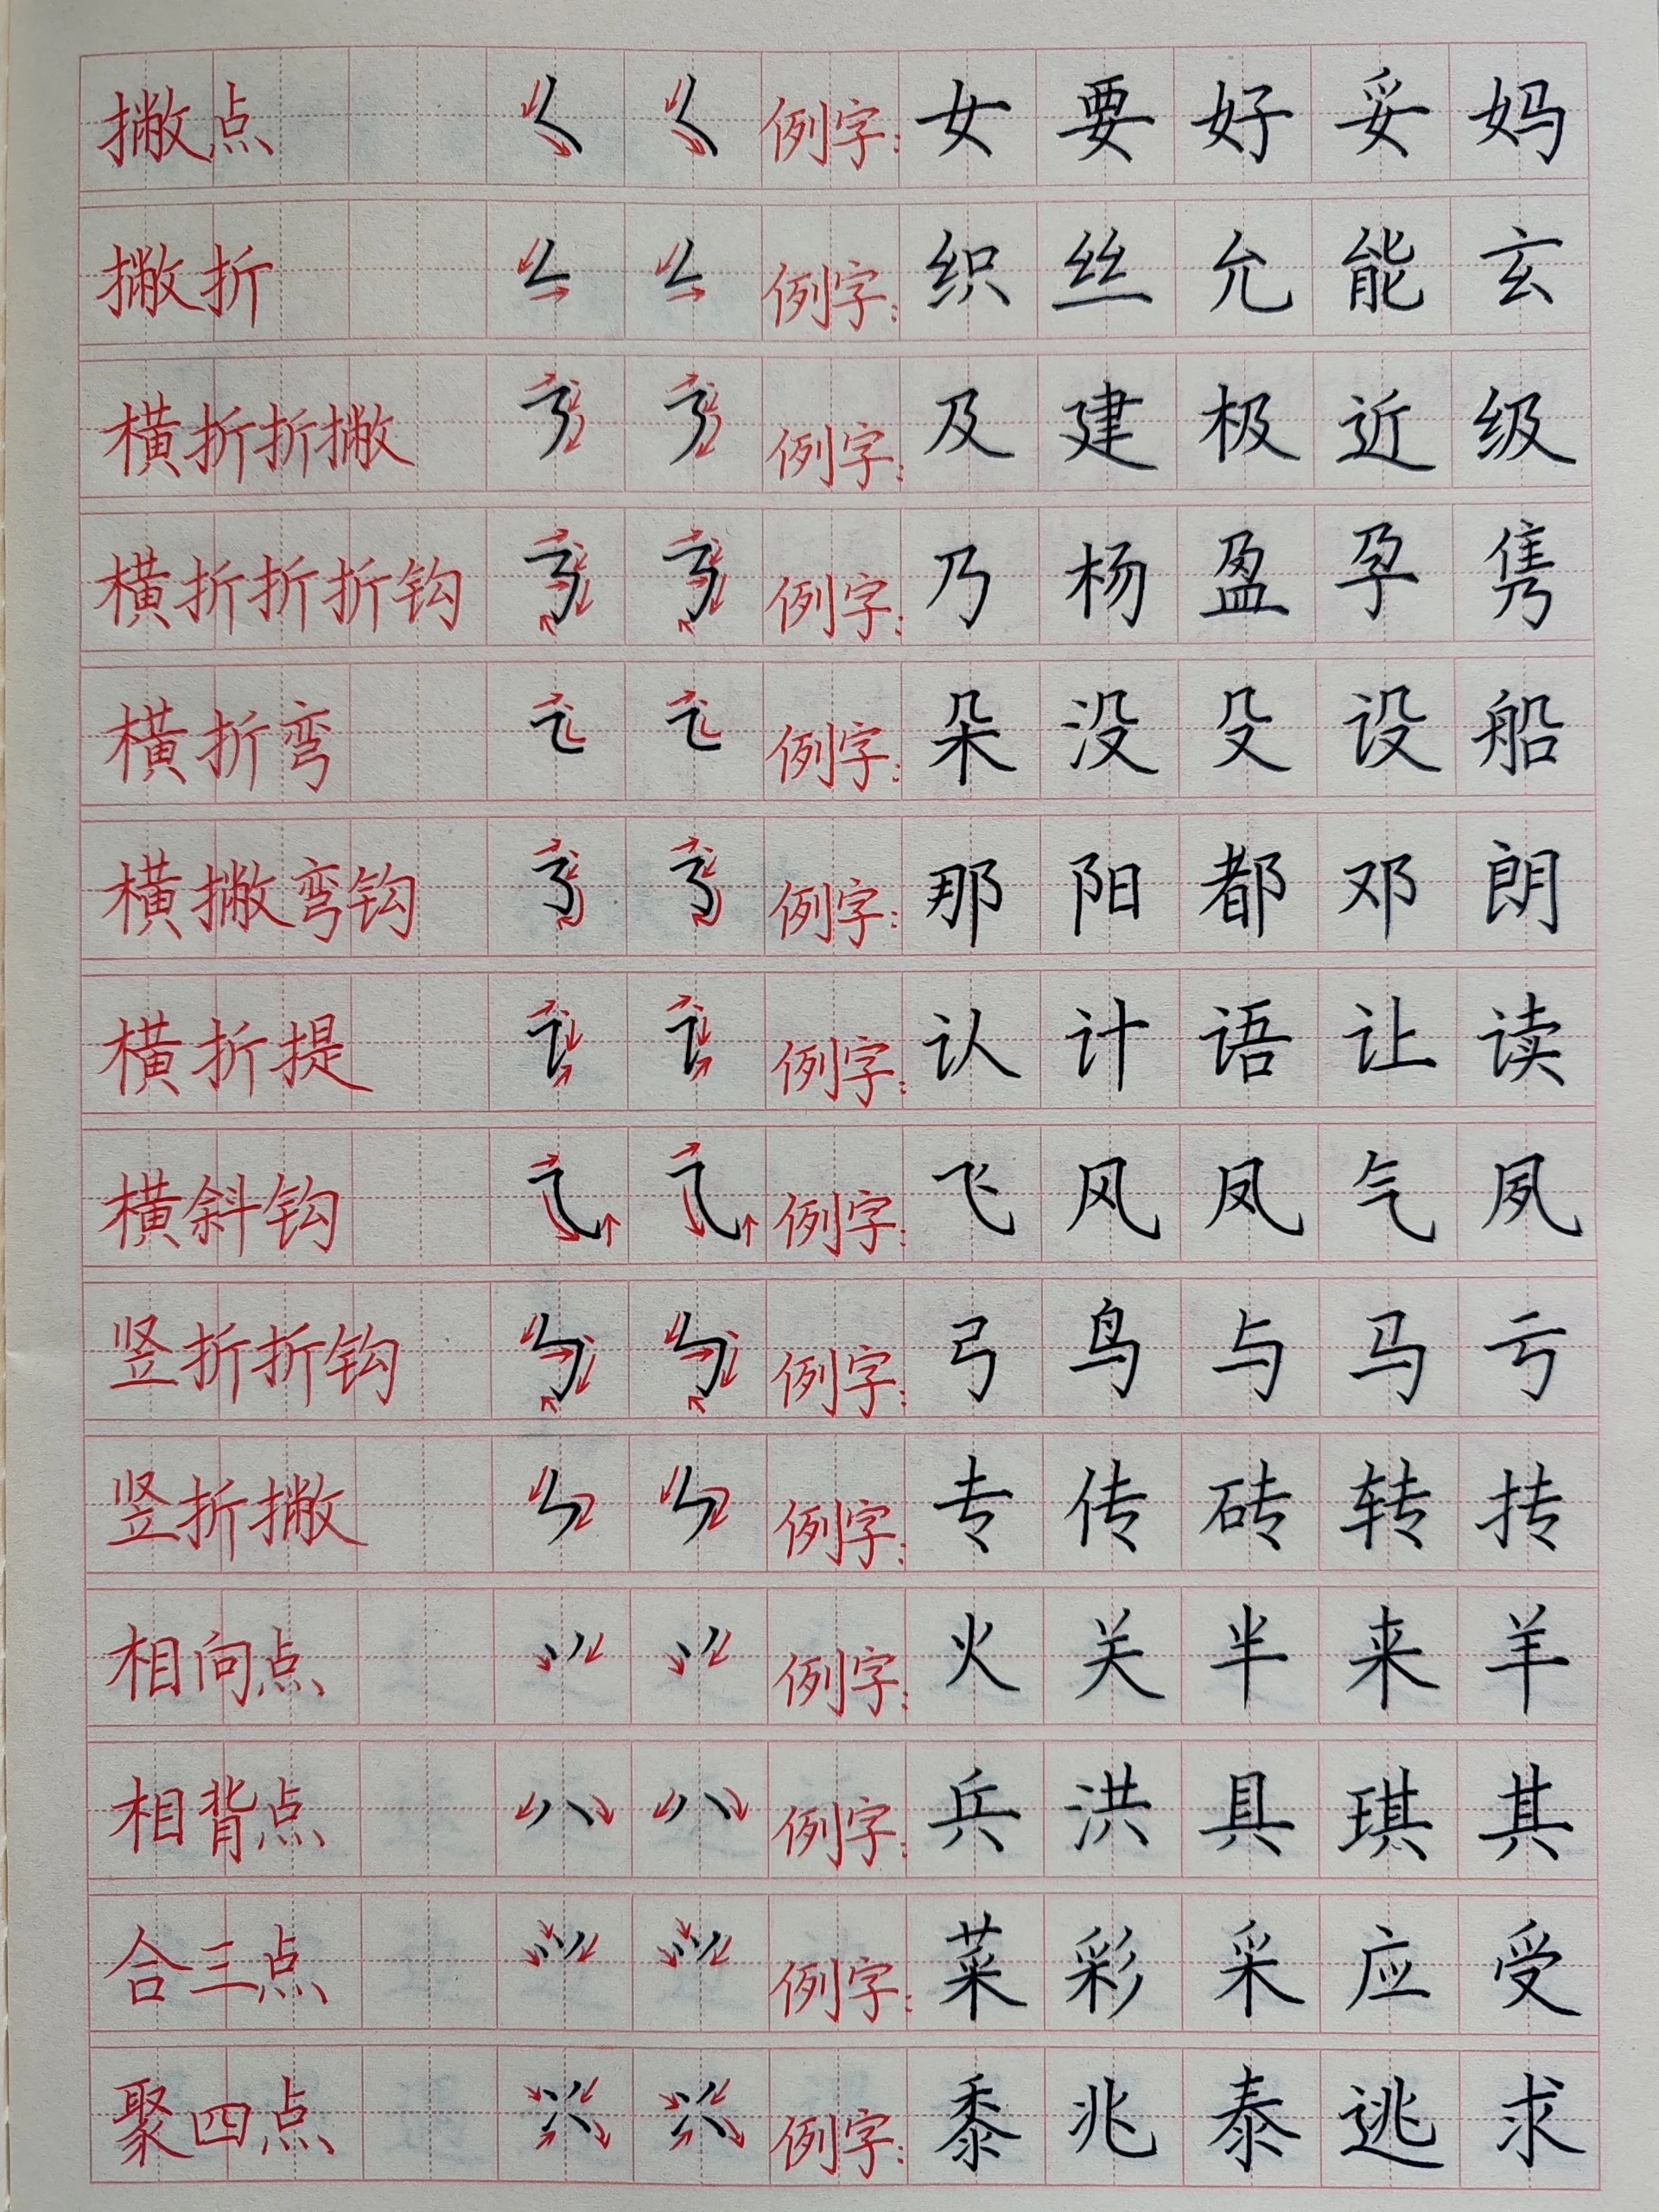 撇点 𡿨 𡿨 例字: 女 要 好 妥 妈
撇折 𠃋 𠃋 例字: 织 丝 允 能 玄
横折折撇 ㇋ ㇋ 例字: 及 建 极 近 级
横折折折钩 ㇡ ㇡ 例字: 乃 杨 盈 孕 隽
横折弯 ㇍ ㇍ 例字: 朵 没 殳 设 船
横撇弯钩 ㇌ ㇌ 例字: 那 阳 都 邓 朗
横折提 ㇊ ㇊ 例字: 认 计 语 让 读
横斜钩 ⺄ ⺄ 例字: 飞 风 凤 气 夙
竖折折钩 ㇉ ㇉ 例字: 弓 鸟 与 马 亏
竖折撇 ㄣ ㄣ 例字: 专 传 砖 转 抟
相向点 例字: 火 关 半 来 羊
相背点 例字: 兵 洪 具 琪 其
合三点 例字: 菜 彩 采 应 受
聚四点 例字: 黍 兆 泰 逃 求